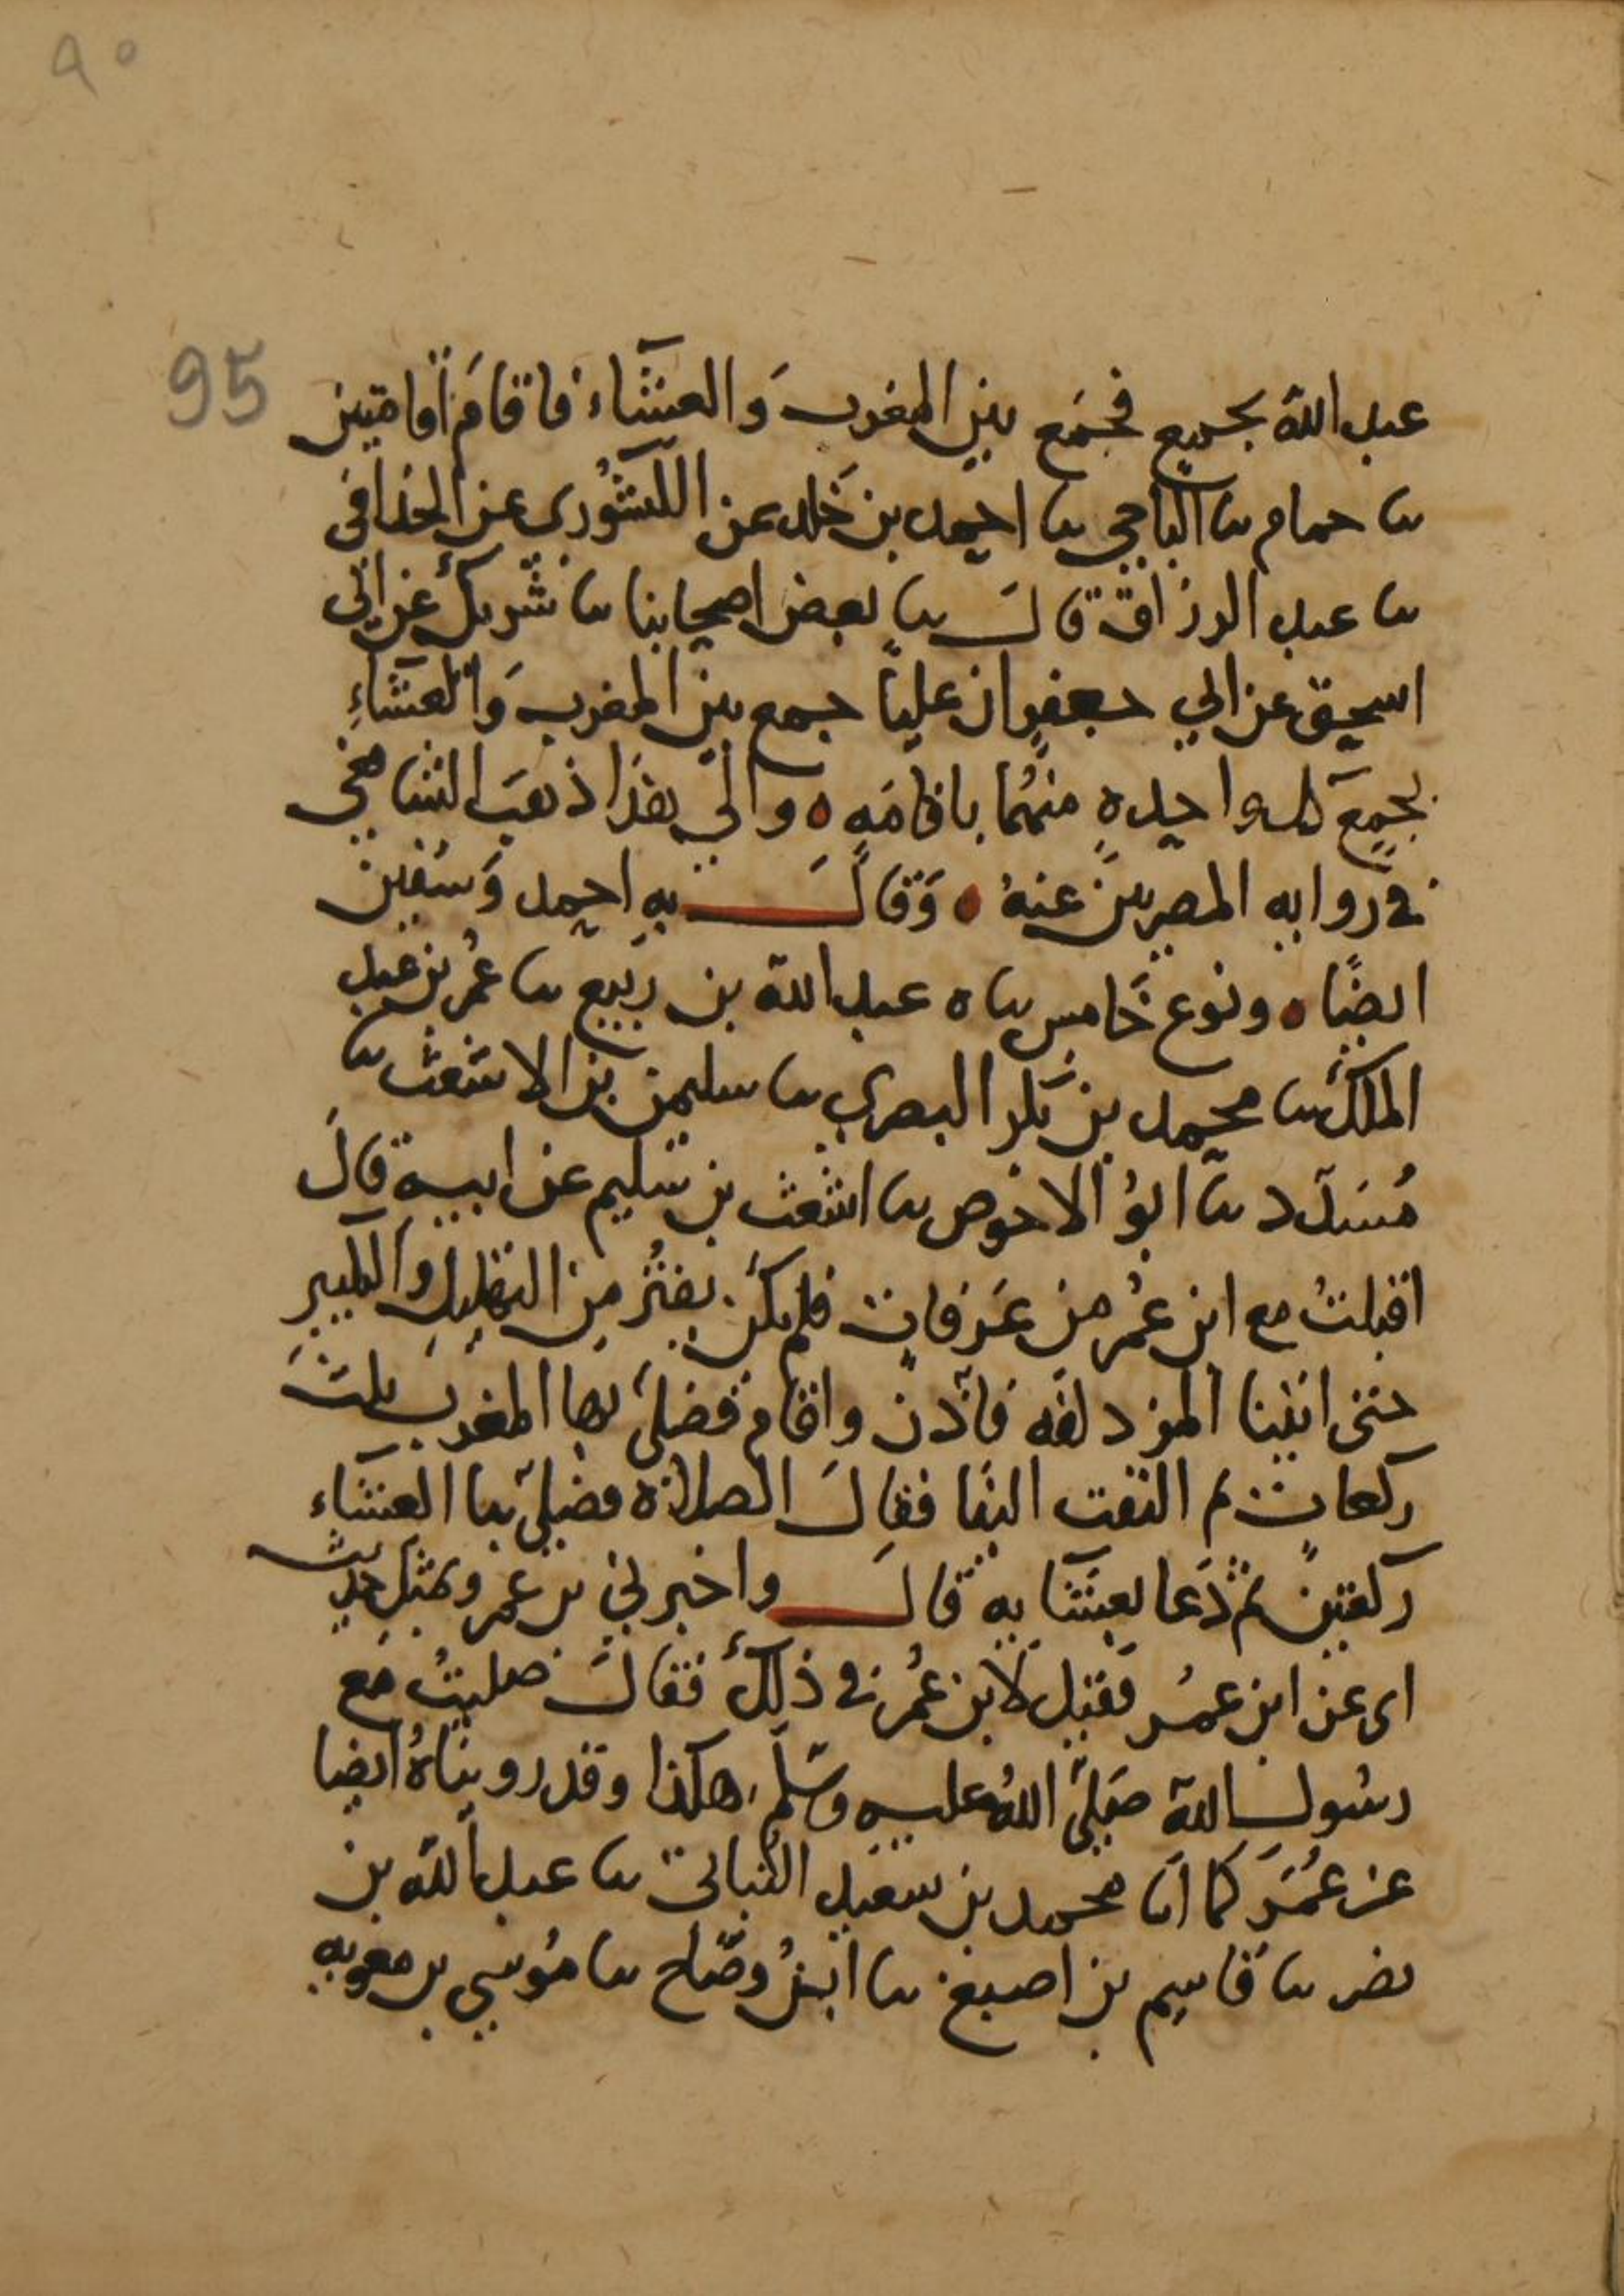 ٩٥
95
عبد الله بجميع فجمع بين المغرب وَالعشَاء فاقامَ اقامتين
ثنا حمام ثنا الباجي ثنا احمد بن خَلد عن الكشوُري عن الحذافي
ثنا عبد الرزاق قال ثنا بعض اصحابنا ثنا شريك عن ابي
اسحق عن ابي جعفرٍ ان علياً جمع بين المغرب وَالعشَاءِ
بجمعٍ كل واحدهٍ منهُما باقامَهٍ ه والي هذا ذهبَ الشافعي
في روايه المصريين عنهُ ه وَقالَ به احمد وَسُفين
ايضًا ه ونوع خَامس ثنا ه عبد الله بن ربيع ثنا عُمر بن عبد
الملك ثنا محمد بن بَكر البصري ثنا سليمن بن الاشعث ثنا
مُسَدد ثنا ابوُ الاحوص ثنا اشعث بن سليم عن ابيه قالَ
اقبلتُ مع ابن عُمر من عَرفاتٍ فلم يكن يفتُر من التهليلِ والتكبيرِ
حتى اتينا المزدلفه فاذن واقام فصلى بها المغرب ثلثَ
ركعاتٍ ثم التفت الينا فقالَ الصلاة فصلى بنا العشاء
ركعتين ثم دَعا بعشَائه قالَ واخبرني بن عمرو بمثل حديث
اي عن ابن عمُر فقيل لابن عُمر في ذلك فقالَ صليتُ مَع
رسُول الله صَلى اللهُ عليه وسَلم هكذا وقد رويناهُ ايضا
عن عُمَرَ كما انا محمد بن سعيد النباتي ثنا عبد الله بن
نصر ثنا قاسِم بن اصبغ ثنا ابنُ وضاح ثنا مُوسي بن معويه